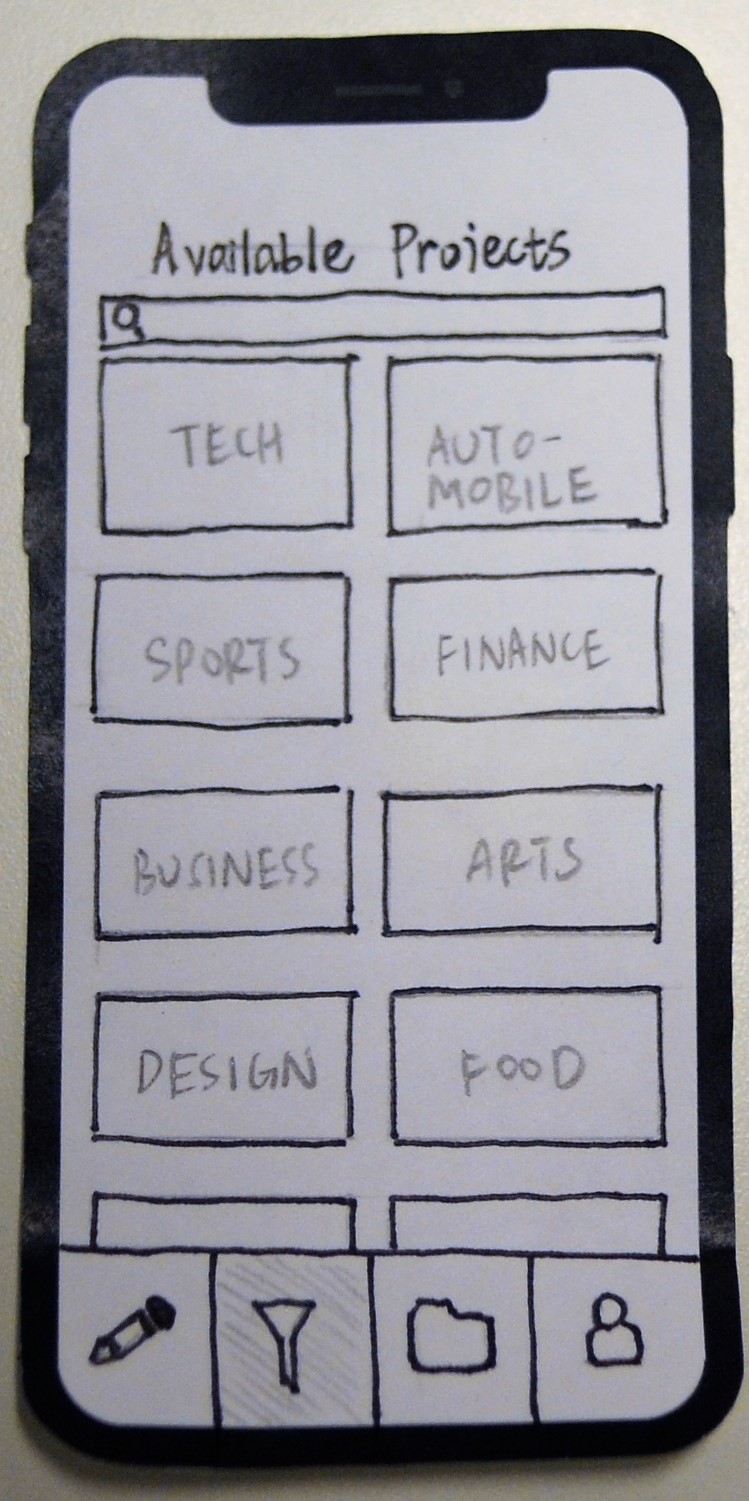 Available Projects
TECH
AUTO-
MOBILE
SPORTS
FINANCE
BUSINESS
ARTS
DESIGN
FOOD